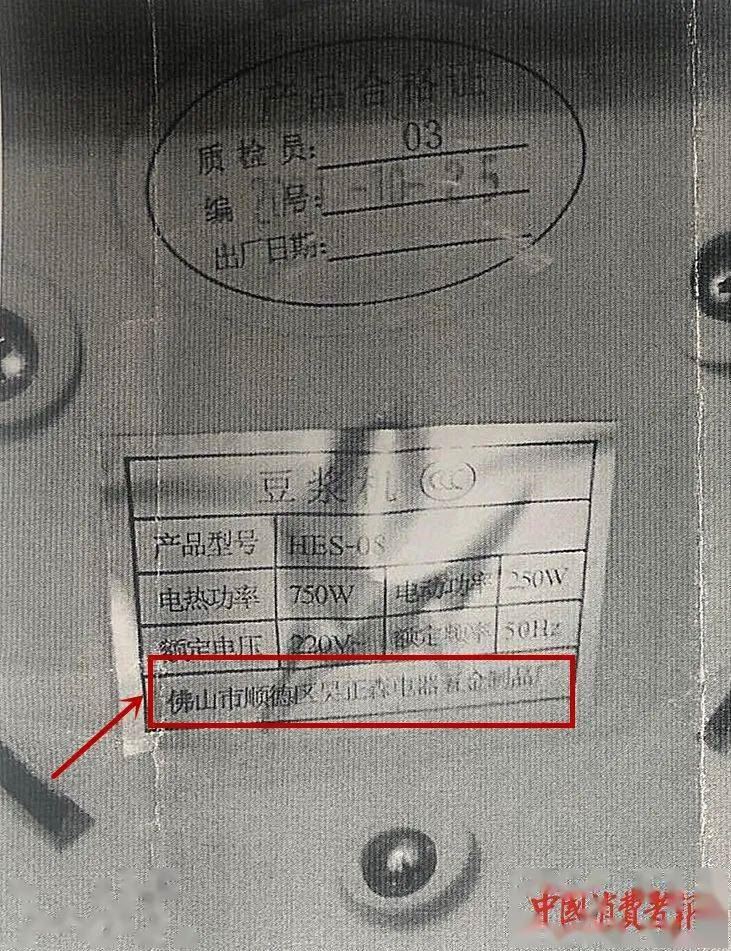 产品合格证
质检员: 03
编号: -10-25
出厂日期:
豆浆机 CCC
产品型号 HES-08
电热功率 750W 电动功率 250W
额定电压 220V~ 额定频率 50Hz
佛山市顺德区昊正森电器五金制品厂
中國消費者